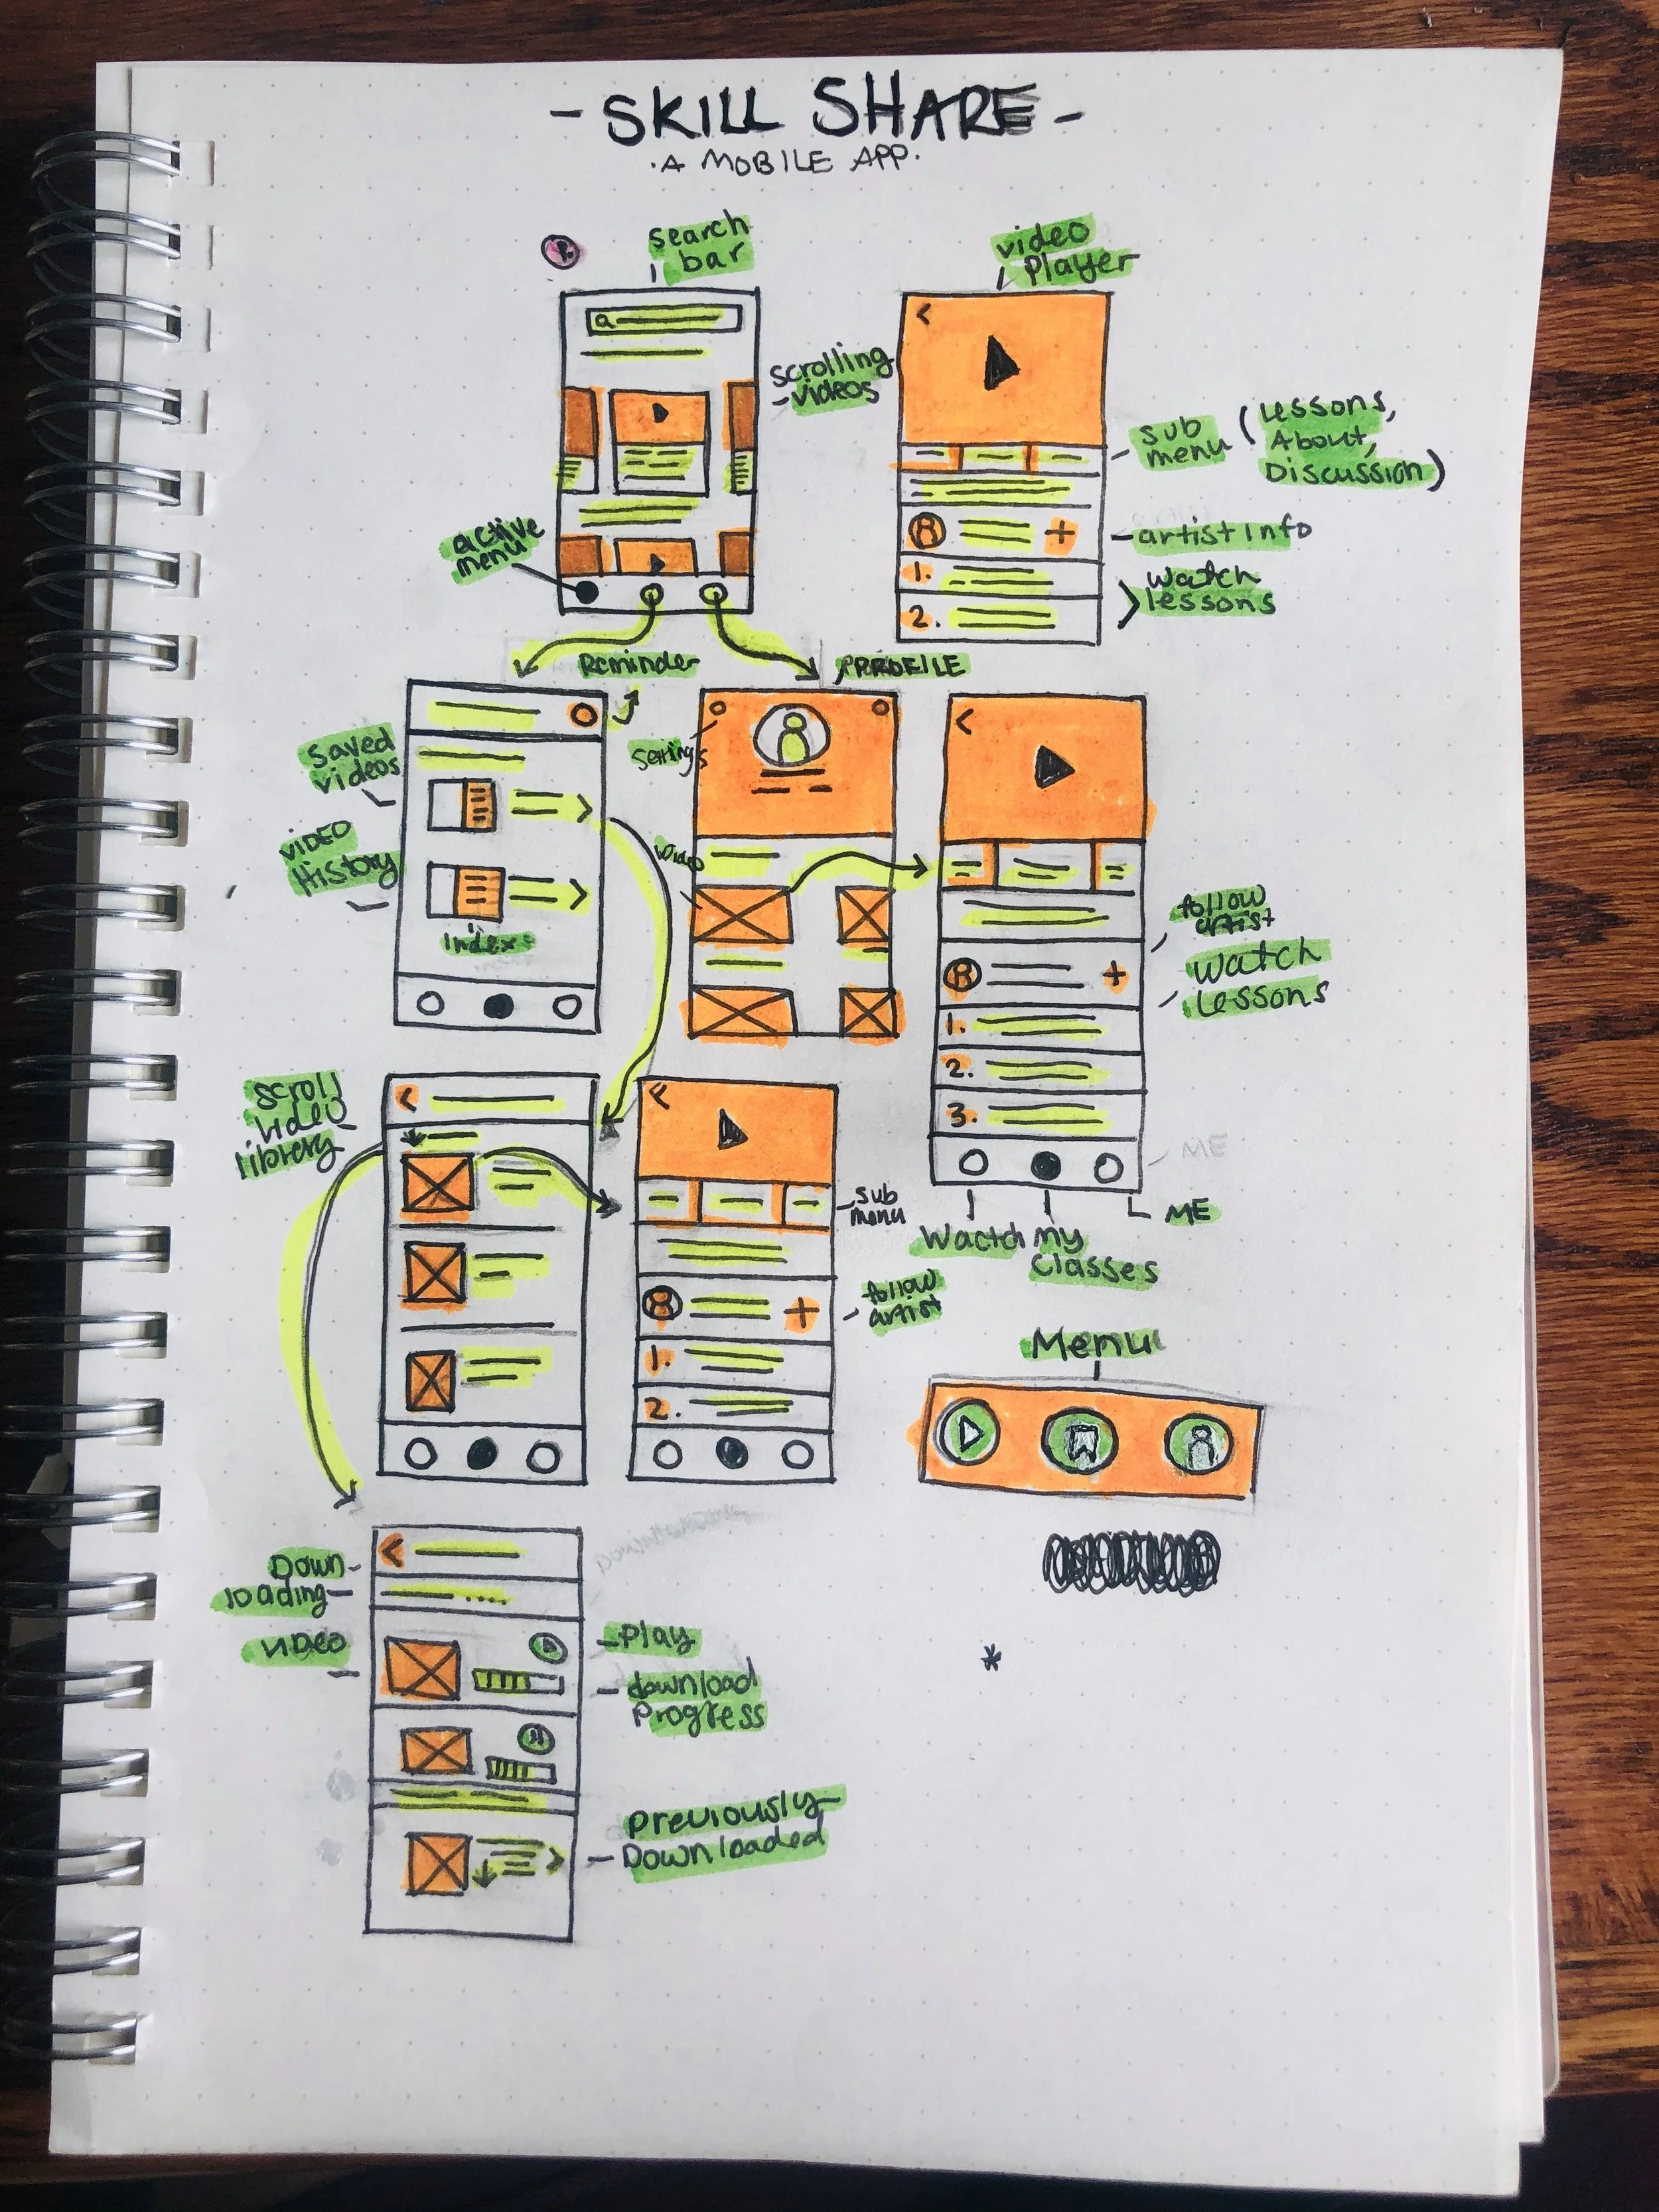 - SKILL SHARE -
.A MOBILE APP.
search
bar
video
Player
a
scrolling
videos
sub
menu
(Lessons,
About,
Discussion)
active
menu
artist Info
1.
2.
watch
lessons
Reminder
PROFILE
saved
videos
Settings
video
History
video
index
follow
artist
watch
Lessons
1.
2.
3.
scroll
video
library
sub
menu
ME
ME
Wactch
my
Classes
follow
artist
1.
2.
Menu
Down-
loading-
video
Play
download
Progress
Previously
Downloaded
*